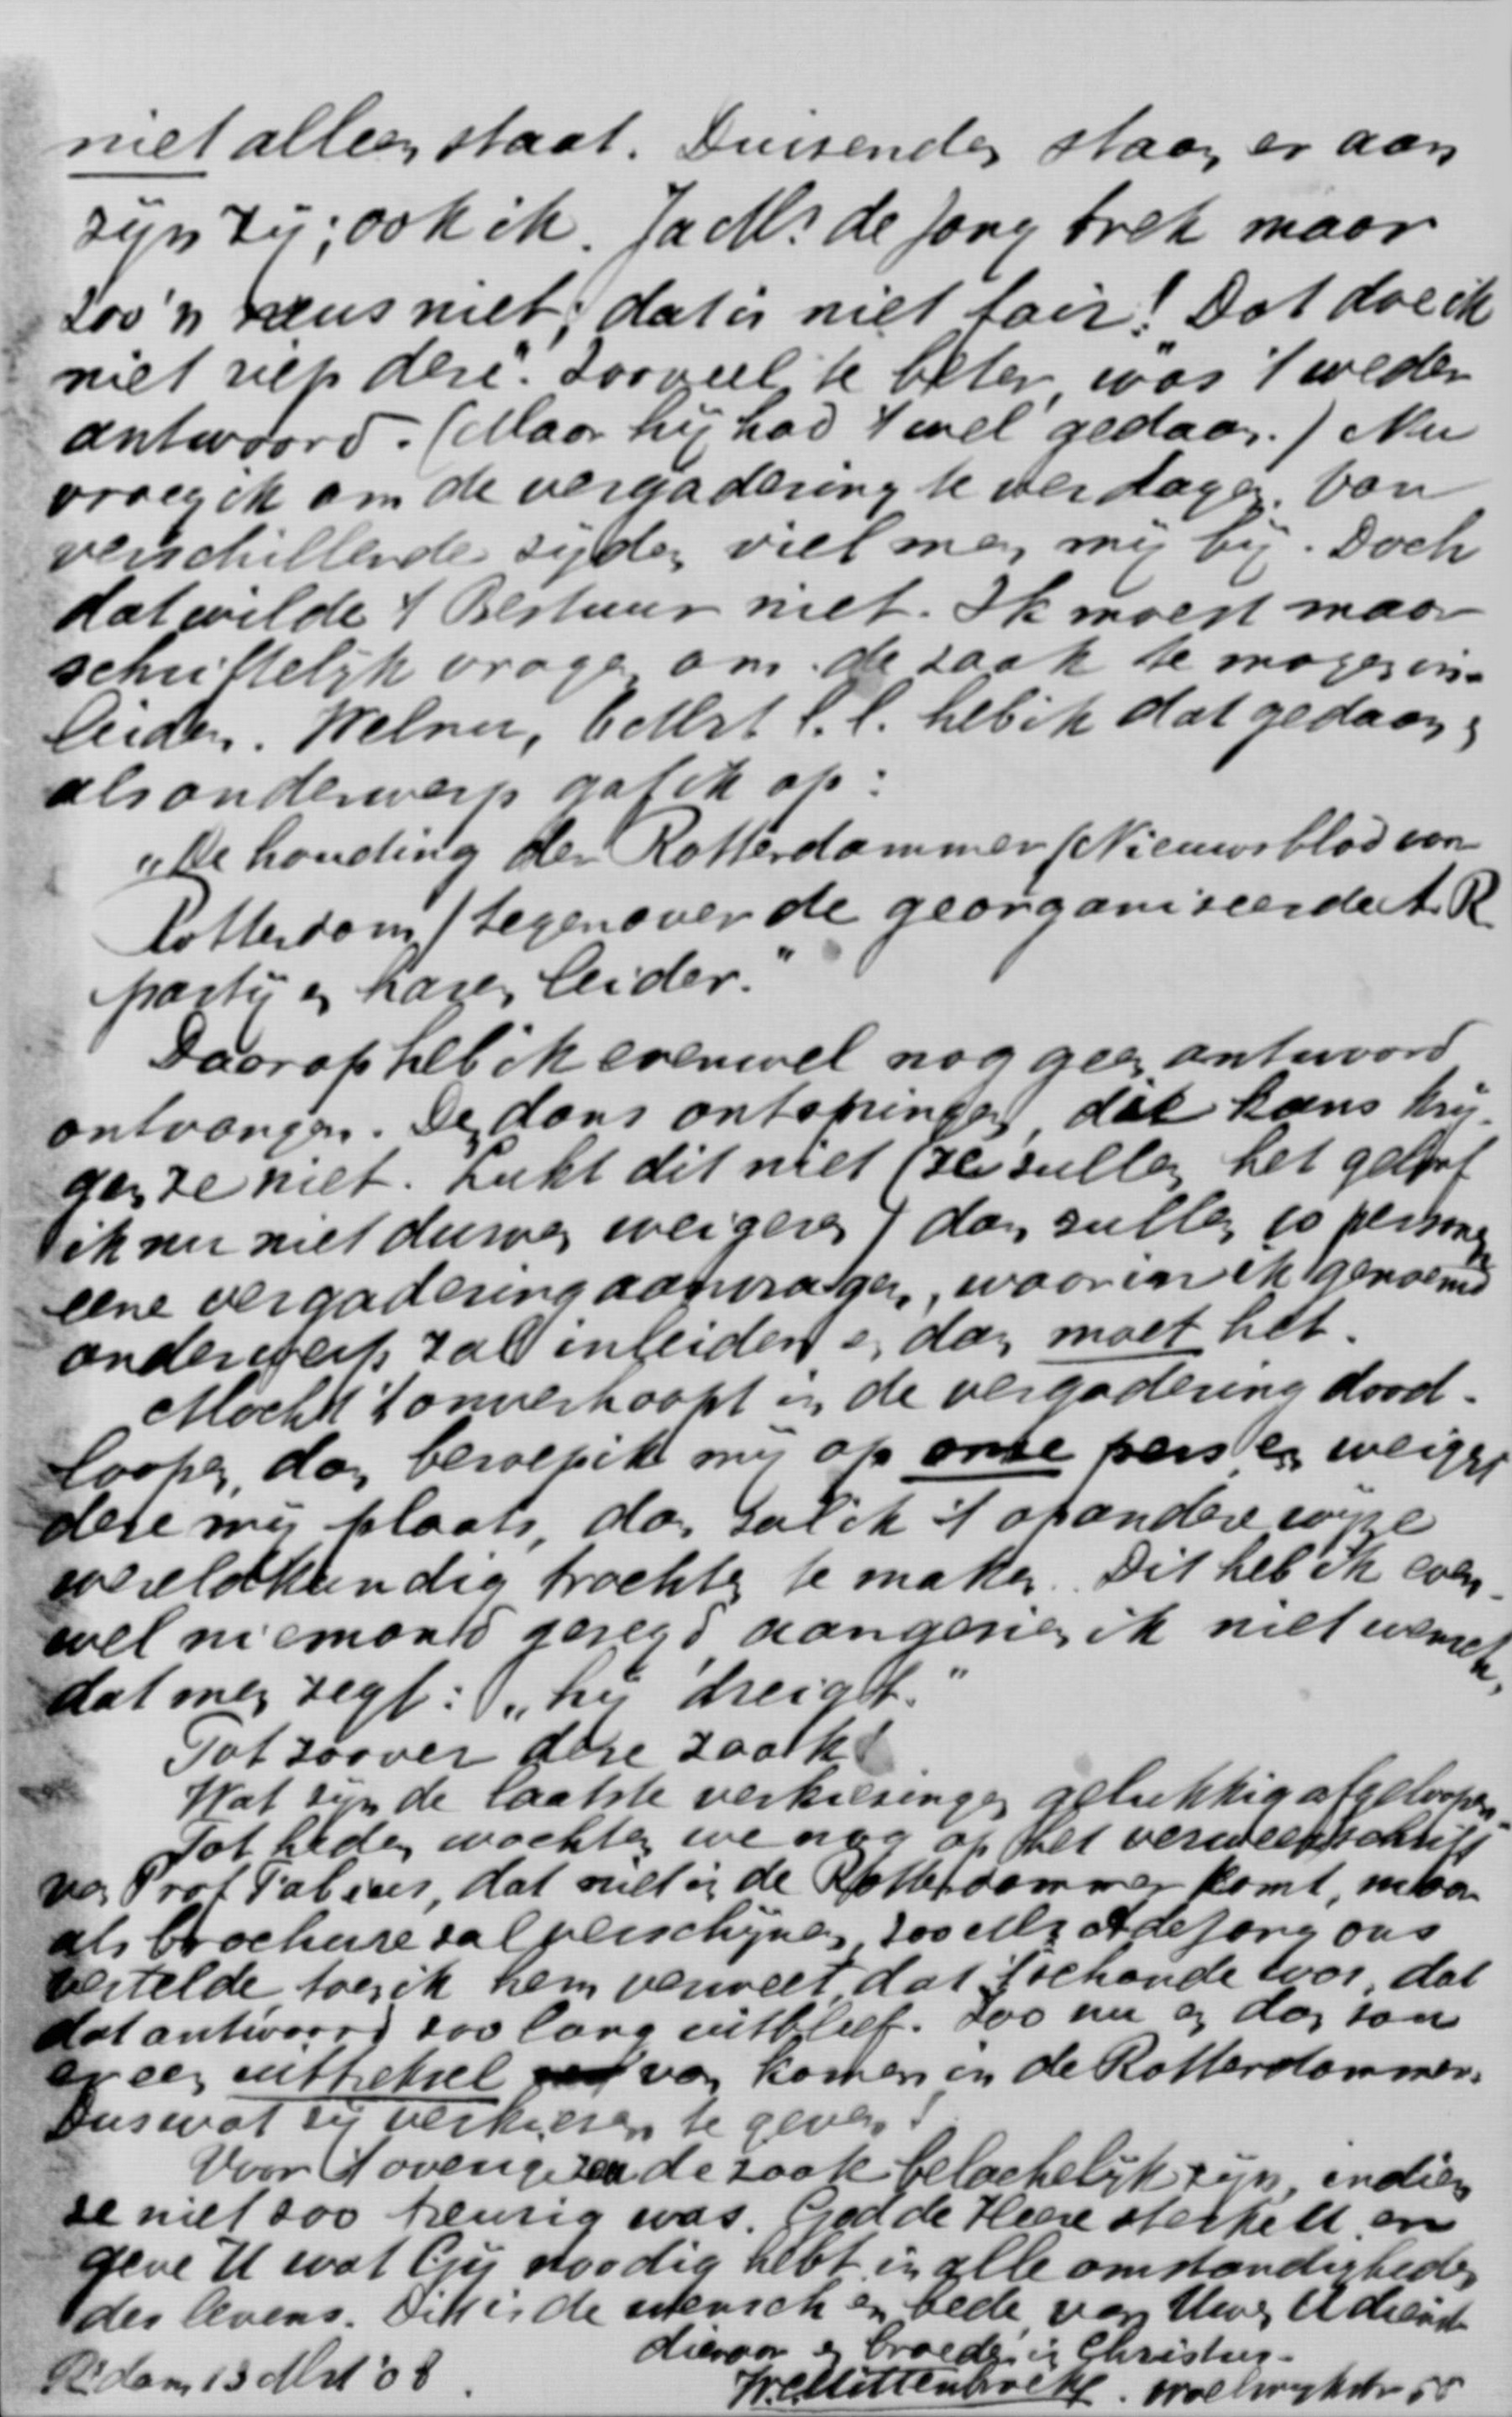 niet alleen staat. Duizenden staan er aan
zijn zij; ook ik. Ja Mr. de Jong trek maar
zoo'n neus niet; dat is niet fair! Dat doe ik
niet riep deze". Zooveel te beter, was 't weder
antwoord. (Maar hij had 't wel gedaan.) Nu
vroeg ik om de vergadering te verdagen. Van
verschillende zijden viel men mij bij. Doch
dat wilde 't Bestuur niet. Ik moest maar
schriftelijk vragen om de zaak te mogen in-
leiden. Welnu, 6 Mrt l.l. heb ik dat gedaan en
als onderwerp gaf ik op:
„De houding der Rotterdammer (Nieuwsblad voor
Rotterdam) tegenover de georganiseerde A.R.
partij en haren leider."
Daarop heb ik evenwel nog geen antwoord
ontvangen. Den dans ontspringen, die kans krij-
gen ze niet. Lukt dit niet (ze zullen het geloof
ik nu niet durven weigeren) dan zullen 10 personen
eene vergadering aanvragen, waarin ik genoemd
onderwerp zal inleiden en dan moet het.
Mocht 't onverhoopt in de vergadering dood-
loopen, dan beroep ik mij op onze pers en weigert
deze mij plaats, dan zal ik 't op andere wijze
wereldkundig trachten te maken. Dit heb ik even-
wel niemand gezegd aangezien ik niet wensch,
dat men zegt: „hij dreigt."
Tot zoover deze zaak!
Wat zijn de laatste verkiezingen gelukkig afgeloopen.
Tot heden wachten we nog op het verweerschrift
van Prof Fabius, dat niet in de Rotterdammer komt, maar
als brochure zal verschijnen, zoo Mr de Jong ons
vertelde, toen ik hem verweet, dat 't schande was, dat
dat antwoord zoo lang uitbleef. Zoo nu en dan zou
er een uittreksel van komen in de Rotterdammer.
Dus wat zij verkiezen te geven!
Voor 't overige zou de zaak belachelijk zijn, indien
ze niet zoo treurig was. God de Heere sterke U en
geve U wat Gij noodig hebt in alle omstandigheden
des levens. Dit is de wensch en bede van Uwen U dienst
dienaar en broeder in Christus.
R'dam 13 Mrt '08